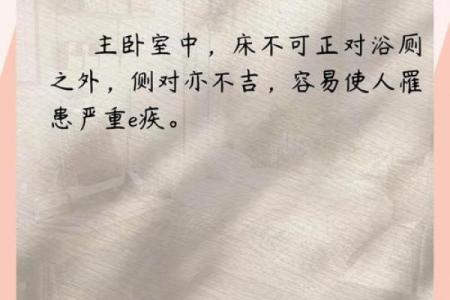 主卧室中，床不可正对浴厕
之外，侧对亦不吉，容易使人罹
患严重e疾。